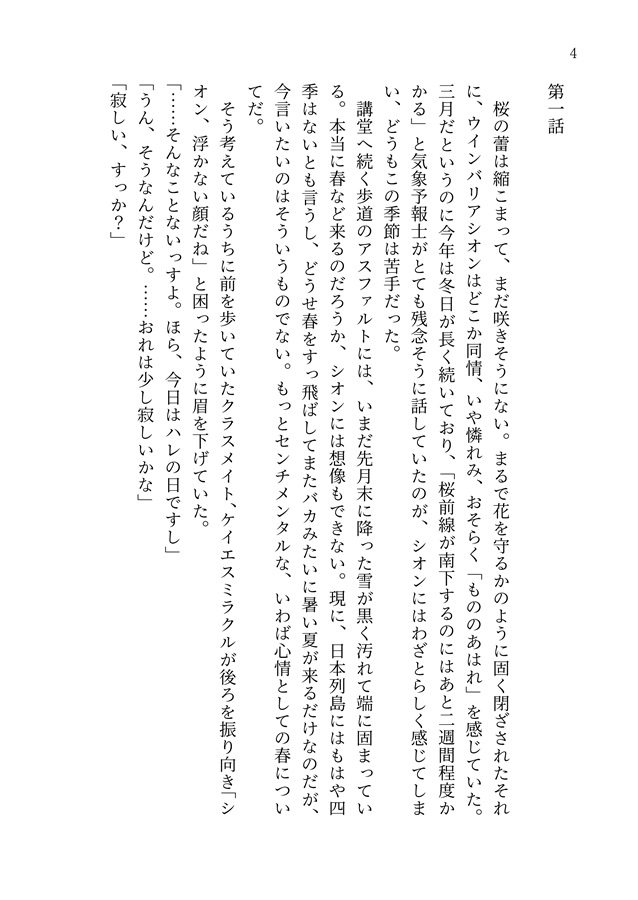 4
第一話
　桜の蕾は縮こまって、まだ咲きそうにない。まるで花を守るかのように固く閉ざされたそれ
に、ウインバリアシオンはどこか同情、いや憐れみ、おそらく「もののあはれ」を感じていた。
三月だというのに今年は冬日が長く続いており、「桜前線が南下するのにはあと二週間程度か
かる」と気象予報士がとても残念そうに話していたのが、シオンにはわざとらしく感じてしま
い、どうもこの季節は苦手だった。
　講堂へ続く歩道のアスファルトには、いまだ先月末に降った雪が黒く汚れて端に固まってい
る。本当に春など来るのだろうか、シオンには想像もできない。現に、日本列島にはもはや四
季はないとも言うし、どうせ春をすっ飛ばしてまたバカみたいに暑い夏が来るだけなのだが、
今言いたいのはそういうものでない。もっとセンチメンタルな、いわば心情としての春につい
てだ。
　そう考えているうちに前を歩いていたクラスメイト、ケイエスミラクルが後ろを振り向き「シ
オン、浮かない顔だね」と困ったように眉を下げていた。
「……そんなことないっすよ。ほら、今日はハレの日ですし」
「うん、そうなんだけど。……おれは少し寂しいかな」
「寂しい、すっか？」